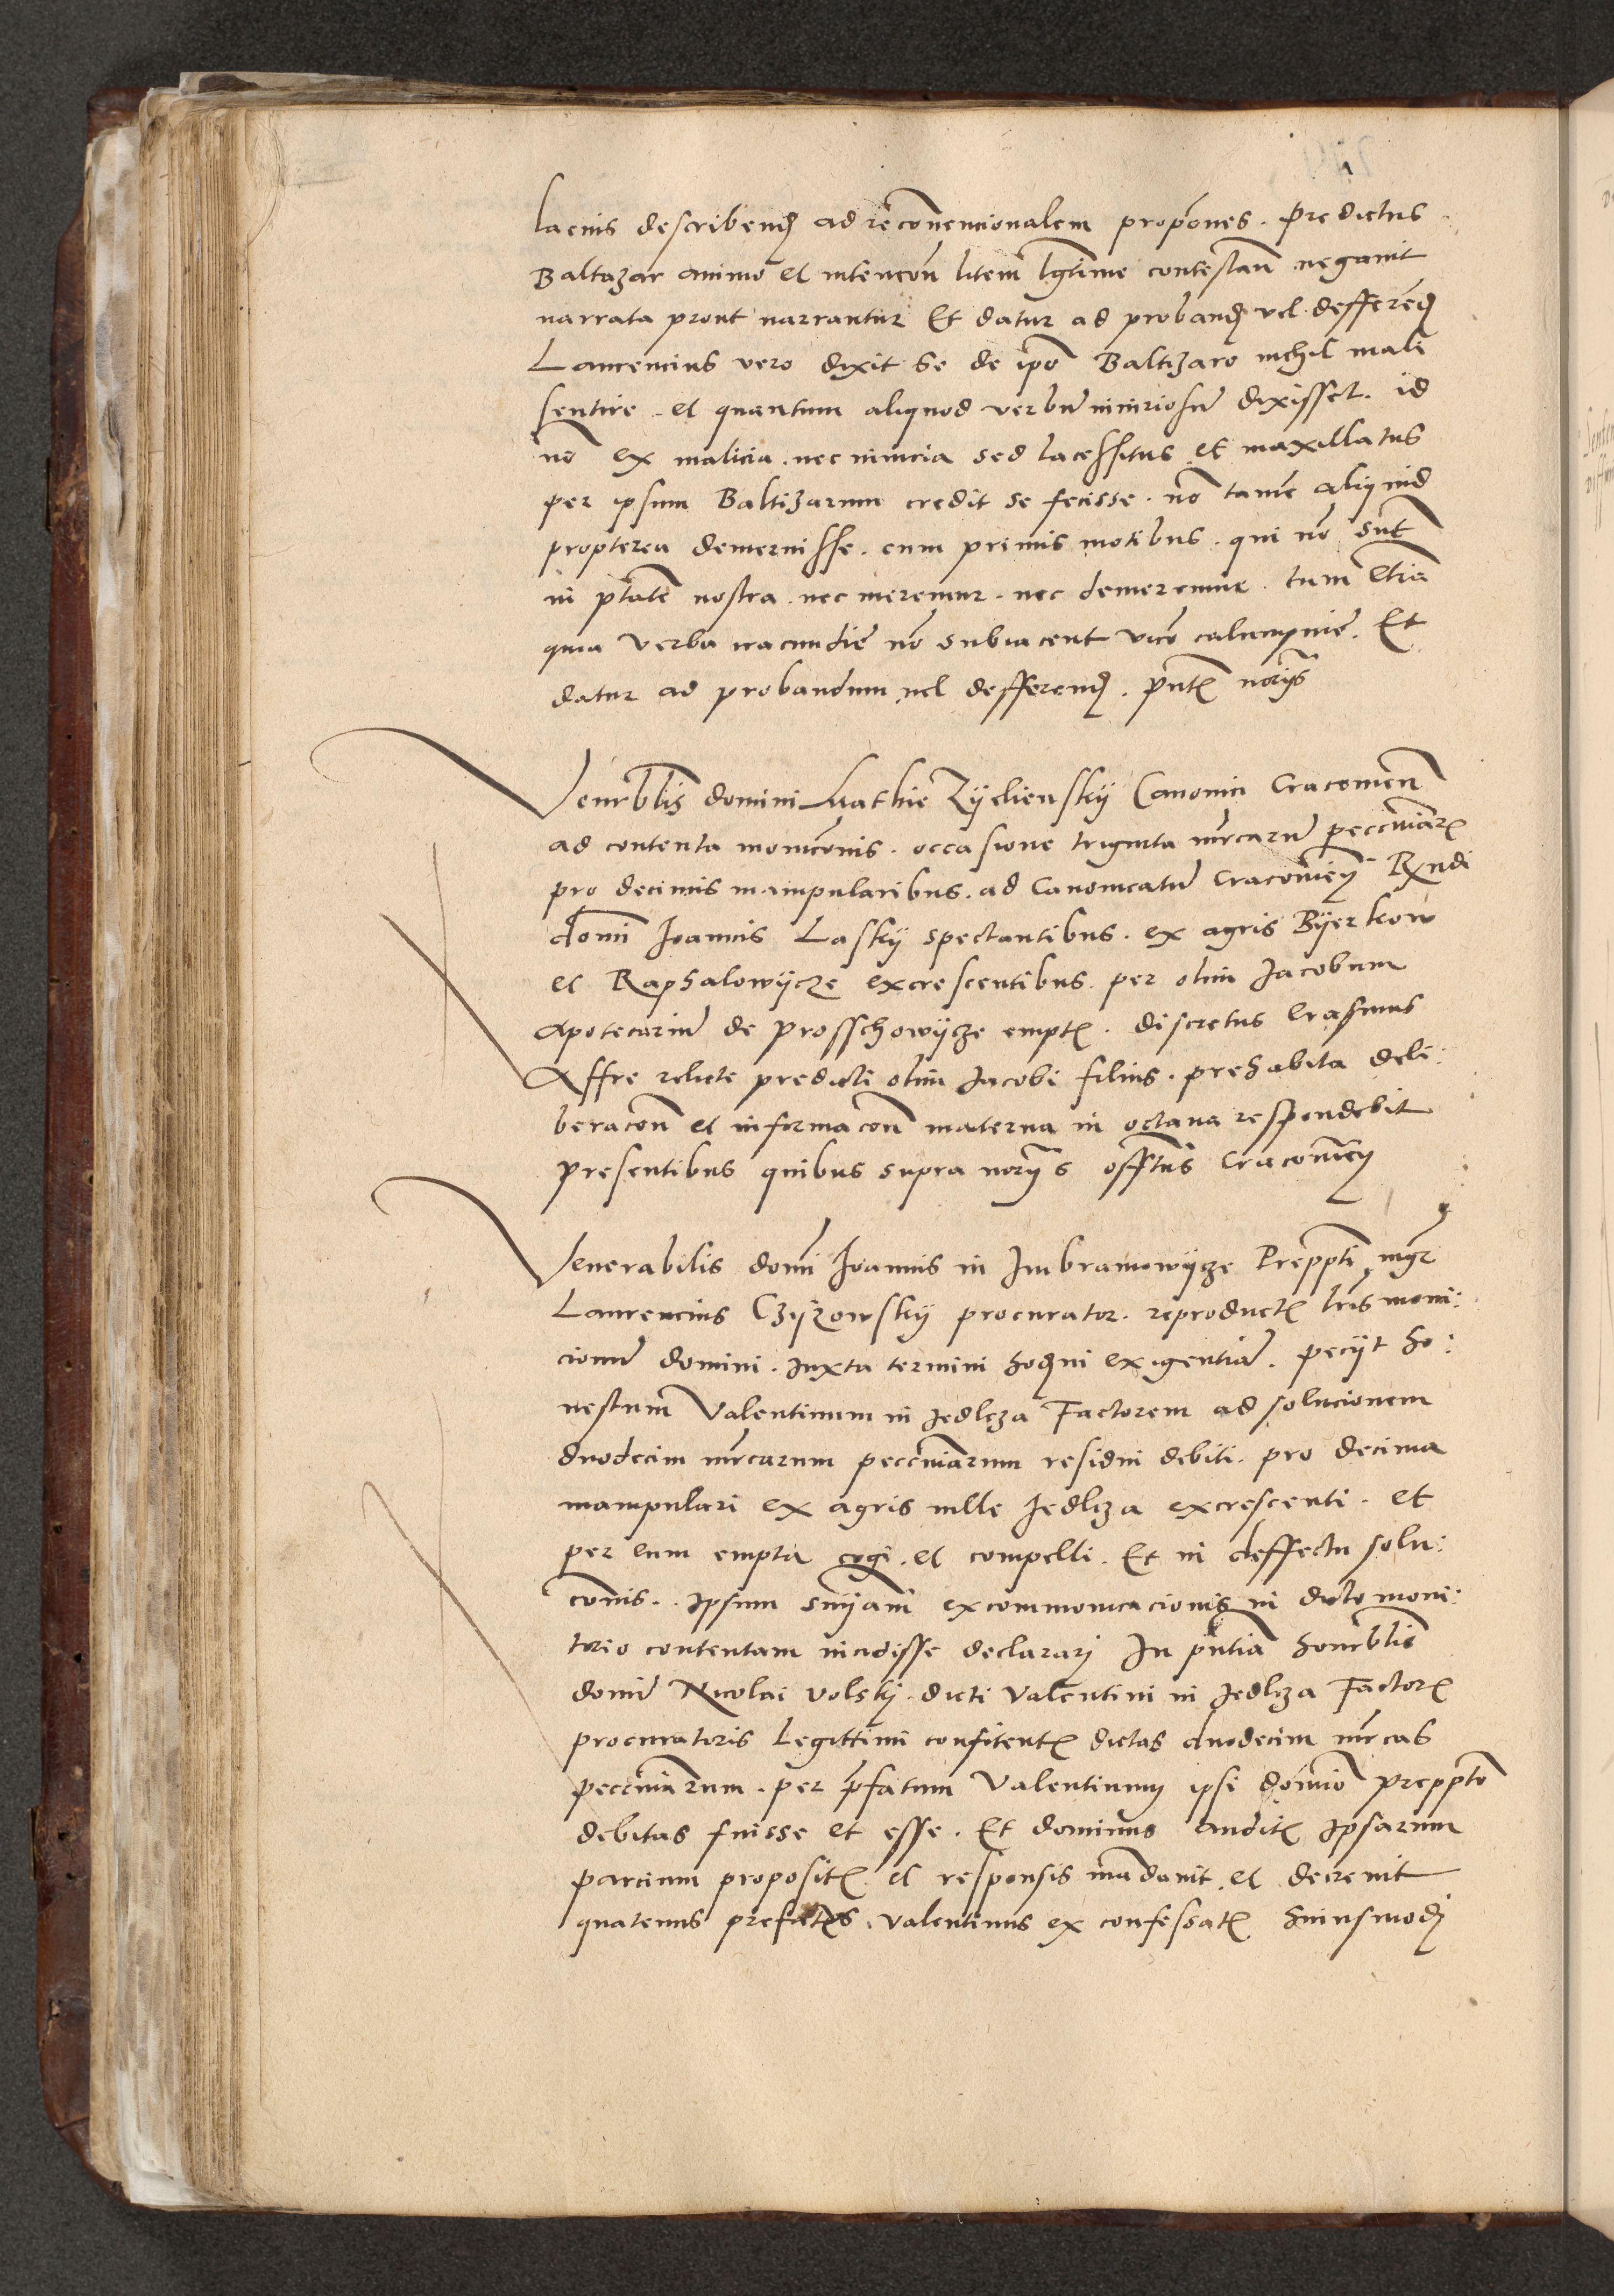 lacius describend ad reconvencionalem propones. Predictus
Baltazar animo et intencon litem lgtime contestan negavit
narrata prout narrantur Et datur ad proband vel defferend
Laurencius vero dixit se de ipo Baltizaro nichil mali
sentire. et quantum aliquod verbu iniuriosu dixisset. id
no ex malicia. nec iniuria sed lacessitus et maxillatus
per ipsum Baltizarum credit se fecisse. no tame aliquid
propterea demeruisse. cum primis motibus. qui no sunt
in ptate nostra. nec meremur. nec demeremur. tum etia
quia verba iracundie no subiacent vicio calumpnie. Et
datur ad probandum vel defferend. pntibus noriis
Venerblis domini Mathie Zyeliensky Canonici Cracovien
ad contenta moniconis. occasione triginta mrcaru pecciniar
pro decimis manipularibus. ad Canonicatu Cracovien Rndi
domi Joannis Lasky spectantibus. ex agris Byerkow
et Raphalowycze excrescentibus. per olim Jacobum
Apotecariu de Prosschowycze empt. discretus Erasmus
Affre relicte predicti olim Jacobi filius. prehabita deli:
beracon et informacon materna in octava respondebit
presentibus quibus supra noriis offitus Cracovien
Venerabilis domi Joannis in Imbramowycze Preppti mgr
Laurencius Czyzowsky procurator. reproduct lris moni:
cionu domini. iuxta termini hodini exigentia. peciit ho:
nestum Valentinum in Jedlcza Factorem ad solucionem
duodecim mrcarum pecciniarum residui debiti. pro decima
manipulari ex agris ville Jedlcza excrescenti. et
per eum empta cogi. et compelli. Et in deffectu solu:
conis. ipsum sniam excommonicacionis in dicto moni:
torio contentam incidisse declarari In pntia honorblis
domi Nicolai Volsky. dicti Valentini in Jedlcza Factor
procuratoris Legittimi confitent dictas duodecim mrcas
pecciniarum. per pfatum Valentinum ipsi domio preppto
debitas fuisse et esse. Et dominus audit ipsarum
parcium proposit et responsis mandavit. et decrevit
quatenus prefatus. Valentinus ex confessat huiusmodi